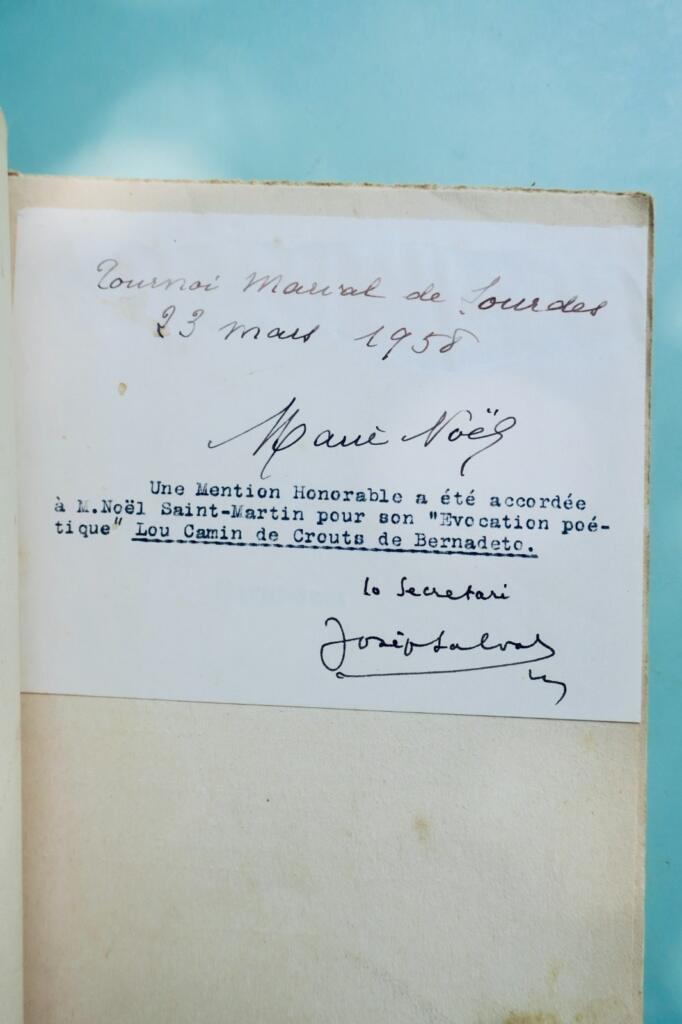 Tournoi Marial de Lourdes
23 mars 1958
Marie Noël
Une Mention Honorable a été accordée
à M.Noël Saint-Martin pour son "Evocation poé-
tique" Lou Camin de Crouts de Bernadeto.
lo Secretari
Josèp Salvat